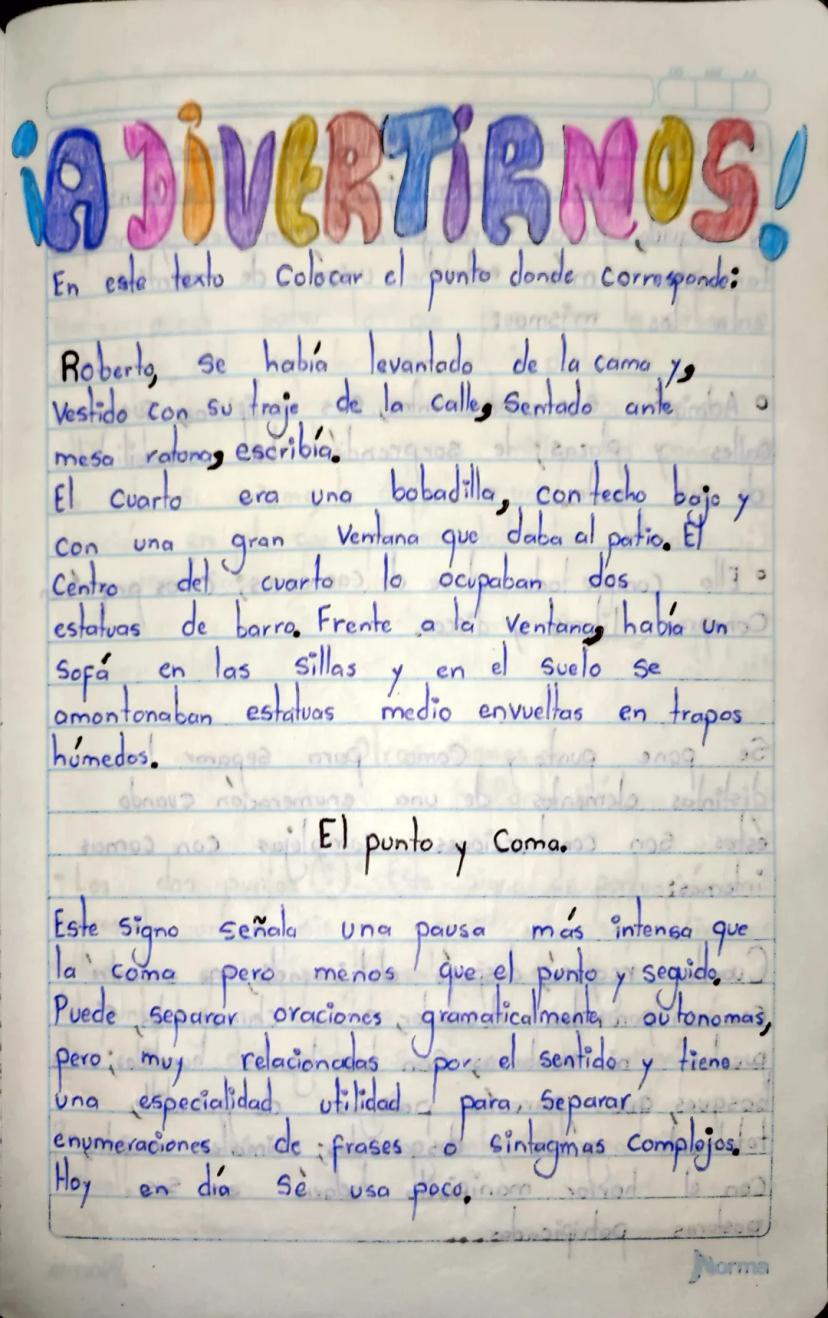 ¡ADIVERTIRNOS!
En este texto Colocar el punto donde corresponde:
Roberto, se había levantado de la cama y,
Vestido con su traje de la calle, Sentado ante
mesa ratona, escribía.
El cuarto era una bobadilla, con techo bajo y
con una gran Ventana que daba al patio. El
Centro del cuarto lo ocupaban dos
estatuas de barro. Frente a la ventana, había un
Sofá en las sillas y en el suelo se
amontonaban estatuas medio envueltas en trapos
húmedos.
El punto y Coma.
Este signo señala una pausa más intensa que
la coma pero menos que el punto y seguido.
Puede separar oraciones gramaticalmente autonomas,
pero muy relacionadas por el sentido y tiene
una especialidad utilidad para separar
enumeraciones de frases o sintagmas complojos.
Hoy en día se usa poco.
Norma